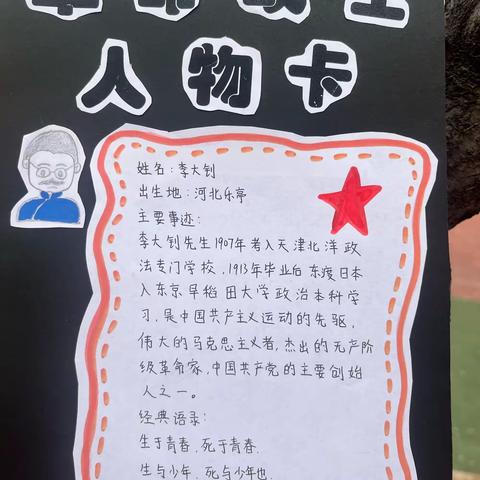 人物卡
姓名：李大钊
出生地：河北乐亭
主要事迹：
李大钊先生1907年考入天津北洋政
法专门学校，1913年毕业后东渡日本
入东京早稻田大学政治本科学
习，是中国共产主义运动的先驱，
伟大的马克思主义者，杰出的无产阶
级革命家，中国共产党的主要创始
人之一。
经典语录：
生于青春，死于青春，
生与少年，死与少年也